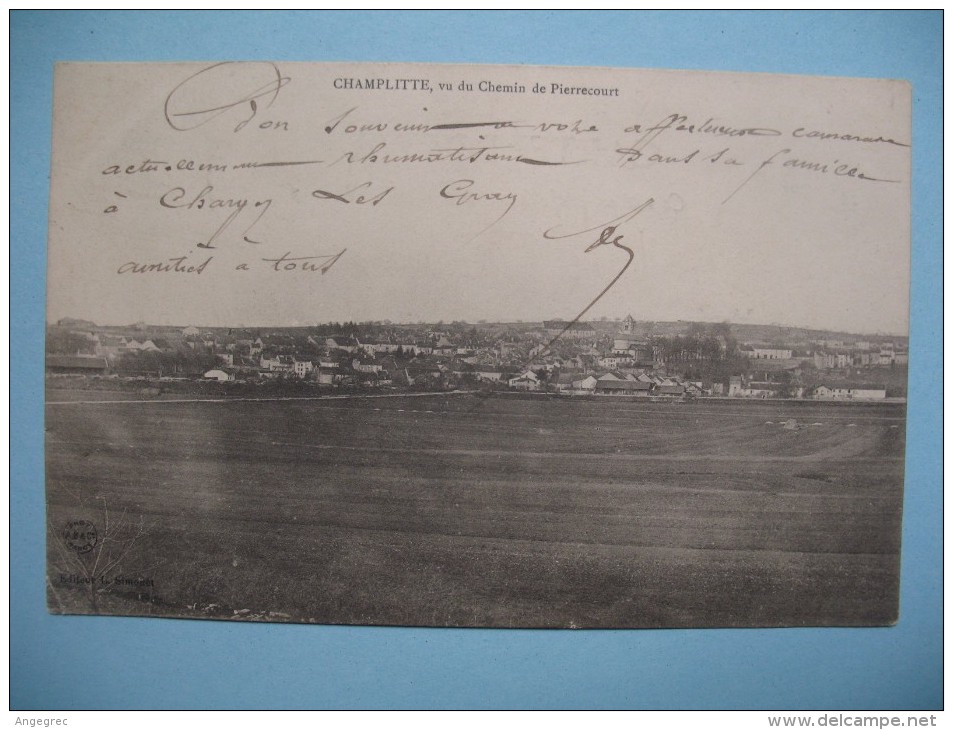 CHAMPLITTE, vu du Chemin de Pierrecourt
Bon souvenir de votre affectueux camarade
actuellement rhumatisant dans sa famille
à Chargey Les Gray
amitiés à tous
Editeur L. Simonet
Angegrec
www.delcampe.net